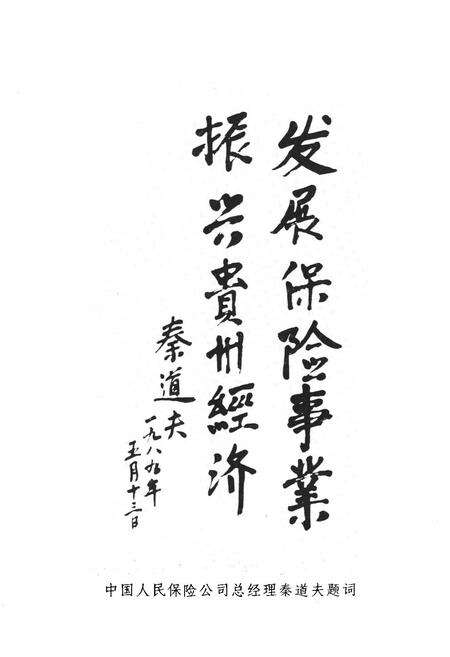 发展保险事業
振兴貴州經济
秦道夫
一九八九年
五月十三日
中国人民保险公司总经理秦道夫题词